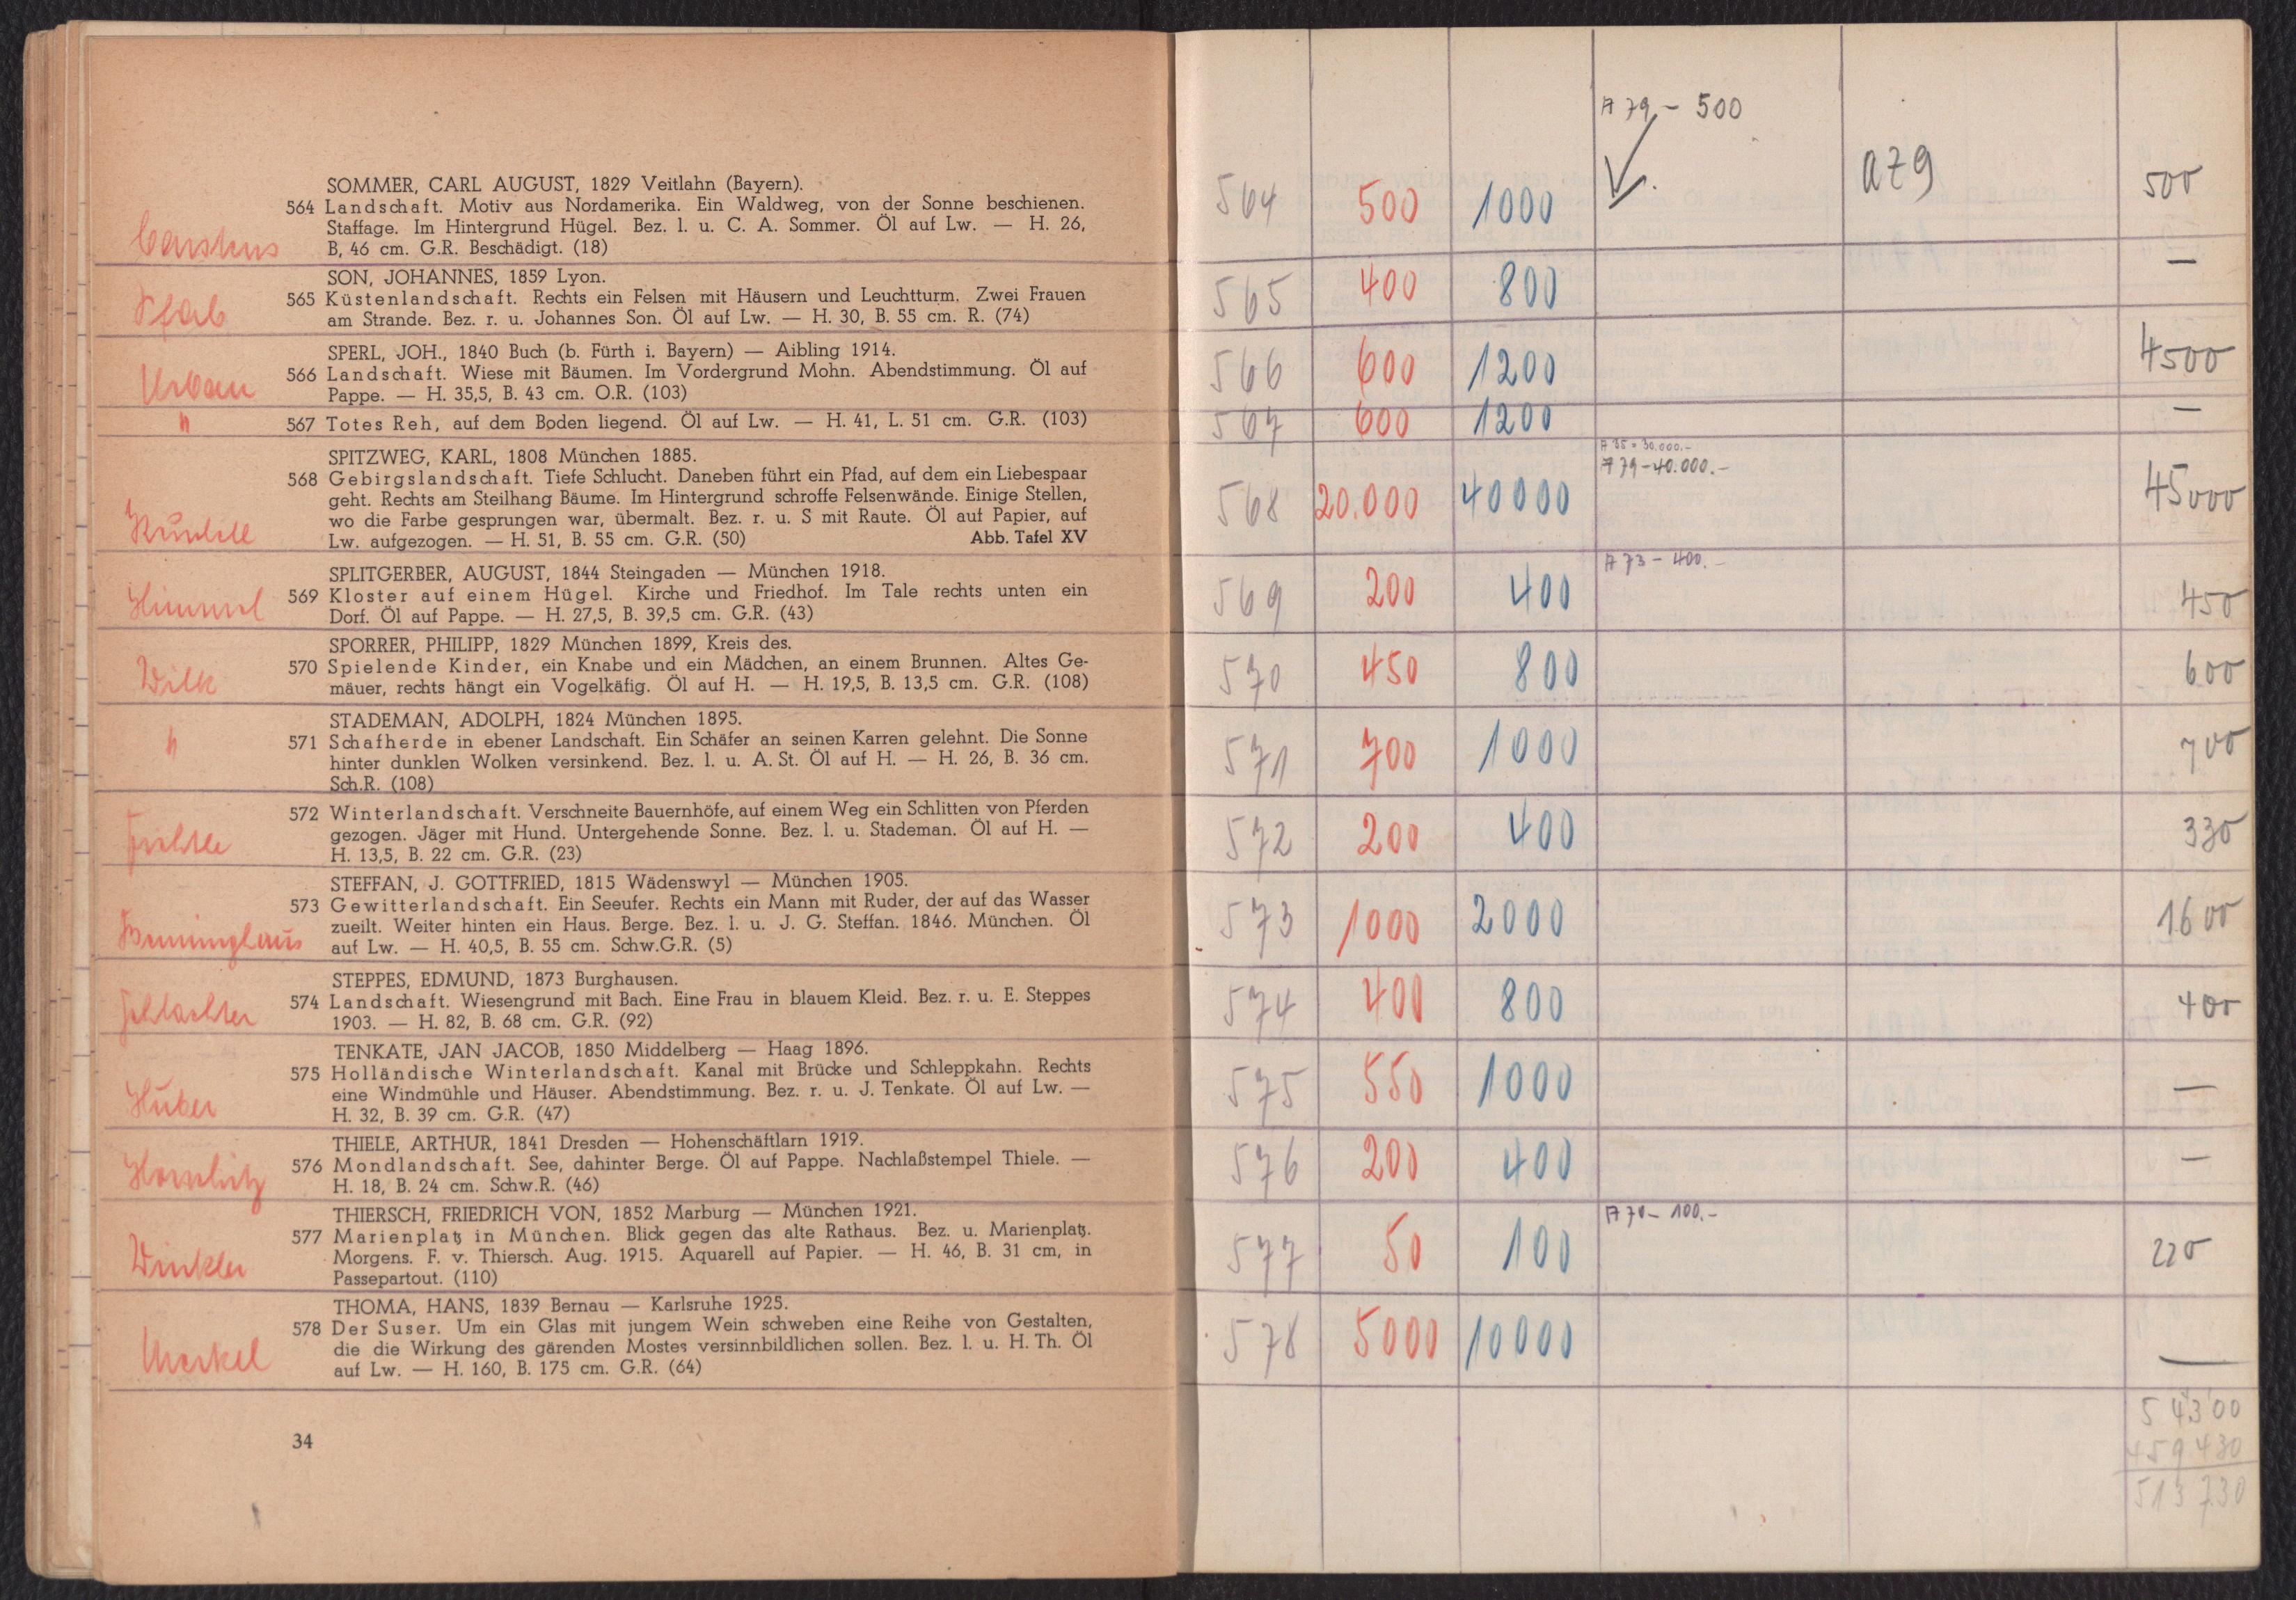 SOMMER, CARL AUGUST, 1829 Veitlahn (Bayern).
564 Landschaft. Motiv aus Nordamerika. Ein Waldweg, von der Sonne beschienen.
Staffage. Im Hintergrund Hügel. Bez. l. u. C. A. Sommer. Öl auf Lw. — H. 26,
B, 46 cm. G.R. Beschädigt. (18)
SON, JOHANNES, 1859 Lyon.
565 Küstenlandschaft. Rechts ein Felsen mit Häusern und Leuchtturm. Zwei Frauen
am Strande. Bez. r. u. Johannes Son. Öl auf Lw. — H. 30, B. 55 cm. R. (74)
Urban
SPERL, JOH., 1840 Buch (b. Fürth i. Bayern) — Aibling 1914.
566 Landschaft. Wiese mit Bäumen. Im Vordergrund Mohn. Abendstimmung. Öl auf
Pappe. — H. 35,5, B. 43 cm. O.R. (103)
"
567 Totes Reh, auf dem Boden liegend. Öl auf Lw. — H. 41, L. 51 cm. G.R. (103)
SPITZWEG, KARL, 1808 München 1885.
568 Gebirgslandschaft. Tiefe Schlucht. Daneben führt ein Pfad, auf dem ein Liebespaar
geht. Rechts am Steilhang Bäume. Im Hintergrund schroffe Felsenwände. Einige Stellen,
wo die Farbe gesprungen war, übermalt. Bez. r. u. S mit Raute. Öl auf Papier, auf
Lw. aufgezogen. — H. 51, B. 55 cm. G.R. (50) Abb. Tafel XV
Himmel
SPLITGERBER, AUGUST, 1844 Steingaden — München 1918.
569 Kloster auf einem Hügel. Kirche und Friedhof. Im Tale rechts unten ein
Dorf. Öl auf Pappe. — H. 27,5, B. 39,5 cm. G.R. (43)
Wilk
SPORRER, PHILIPP, 1829 München 1899, Kreis des.
570 Spielende Kinder, ein Knabe und ein Mädchen, an einem Brunnen. Altes Ge-
mäuer, rechts hängt ein Vogelkäfig. Öl auf H. — H. 19,5, B. 13,5 cm. G.R. (108)
"
STADEMAN, ADOLPH, 1824 München 1895.
571 Schafherde in ebener Landschaft. Ein Schäfer an seinen Karren gelehnt. Die Sonne
hinter dunklen Wolken versinkend. Bez. l. u. A. St. Öl auf H. — H. 26, B. 36 cm.
Sch.R. (108)
572 Winterlandschaft. Verschneite Bauernhöfe, auf einem Weg ein Schlitten von Pferden
gezogen. Jäger mit Hund. Untergehende Sonne. Bez. l. u. Stademan. Öl auf H. —
H. 13,5, B. 22 cm. G.R. (23)
STEFFAN, J. GOTTFRIED, 1815 Wädenswyl — München 1905.
573 Gewitterlandschaft. Ein Seeufer. Rechts ein Mann mit Ruder, der auf das Wasser
zueilt. Weiter hinten ein Haus. Berge. Bez. l. u. J. G. Steffan. 1846. München. Öl
auf Lw. — H. 40,5, B. 55 cm. Schw.G.R. (5)
Schlachter
STEPPES, EDMUND, 1873 Burghausen.
574 Landschaft. Wiesengrund mit Bach. Eine Frau in blauem Kleid. Bez. r. u. E. Steppes
1903. — H. 82, B. 68 cm. G.R. (92)
Huber
TENKATE, JAN JACOB, 1850 Middelberg — Haag 1896.
575 Holländische Winterlandschaft. Kanal mit Brücke und Schleppkahn. Rechts
eine Windmühle und Häuser. Abendstimmung. Bez. r. u. J. Tenkate. Öl auf Lw. —
H. 32, B. 39 cm. G.R. (47)
THIELE, ARTHUR, 1841 Dresden — Hohenschäftlarn 1919.
576 Mondlandschaft. See, dahinter Berge. Öl auf Pappe. Nachlaßstempel Thiele. —
H. 18, B. 24 cm. Schw.R. (46)
Winkler
THIERSCH, FRIEDRICH VON, 1852 Marburg — München 1921.
577 Marienplatz in München. Blick gegen das alte Rathaus. Bez. u. Marienplatz.
Morgens. F. v. Thiersch. Aug. 1915. Aquarell auf Papier. — H. 46, B. 31 cm, in
Passepartout. (110)
Merkel
THOMA, HANS, 1839 Bernau — Karlsruhe 1925.
578 Der Suser. Um ein Glas mit jungem Wein schweben eine Reihe von Gestalten,
die die Wirkung des gärenden Mostes versinnbildlichen sollen. Bez. l. u. H. Th. Öl
auf Lw. — H. 160, B. 175 cm. G.R. (64)
34
A 79 - 500
564 500 1000 a79 500
565 400 800 —
566 600 1200 4500
567 600 1200 —
A 35 = 30.000.-
A 79 - 40.000.-
568 20.000 40000 45000
A 73 - 400.-
569 200 400 450
570 450 800 600
571 700 1000 700
572 200 400 330
573 1000 2000 1600
574 400 800 400
575 550 1000 —
576 200 400 —
A 70 - 100.-
577 50 100 220
578 5000 10000 —
54300
459430
513730